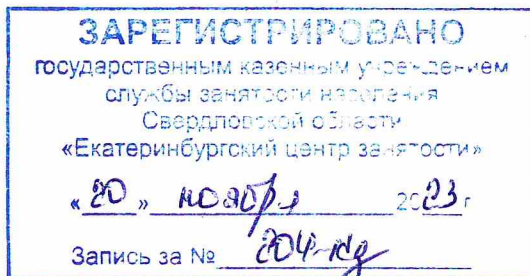 ЗАРЕГИСТРИРОВАНО
государственным казенным учреждением
службы занятости населения
Свердловской области
«Екатеринбургский центр занятости»
«20» ноября 2023 г
Запись за № 204-кд